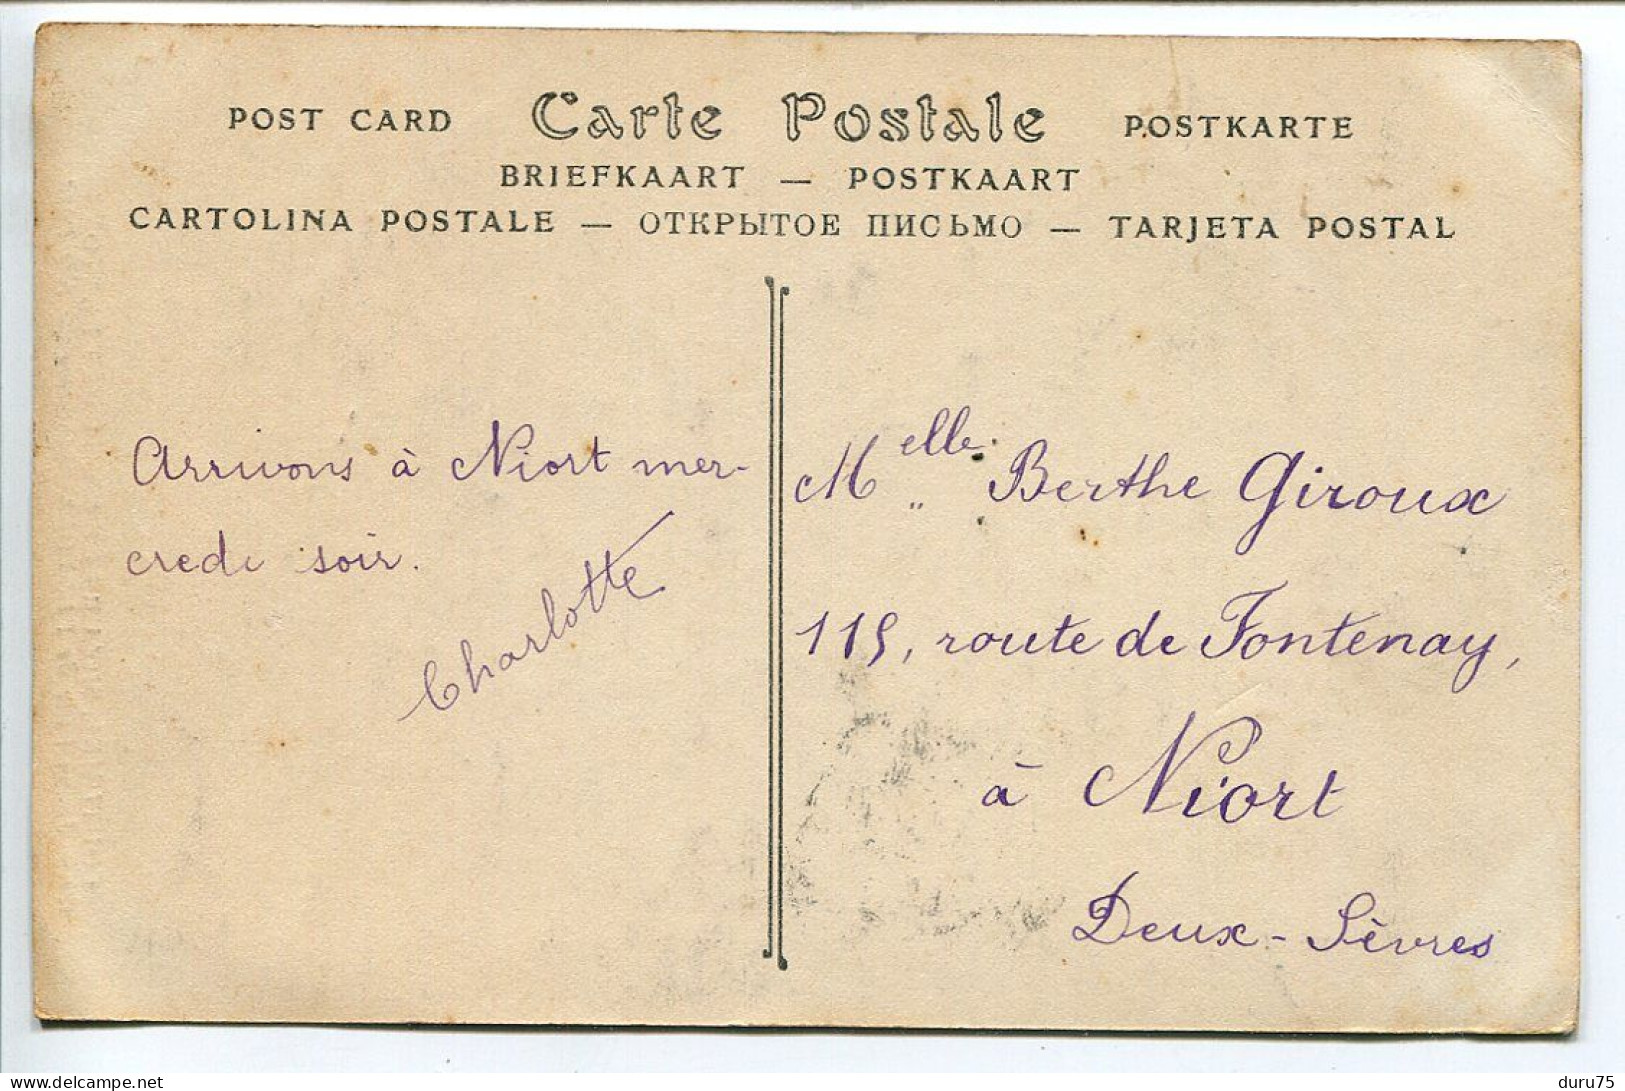 POST CARD Carte Postale POSTKARTE
BRIEFKAART — POSTKAART
CARTOLINA POSTALE — ОТКРЫТОЕ ПИСЬМО — TARJETA POSTAL
Arrivons à Niort mer-
credi soir.
Charlotte
Melle Berthe Giroux
115, route de Fontenay,
à Niort
Deux-Sèvres
delcampe.net
duru75